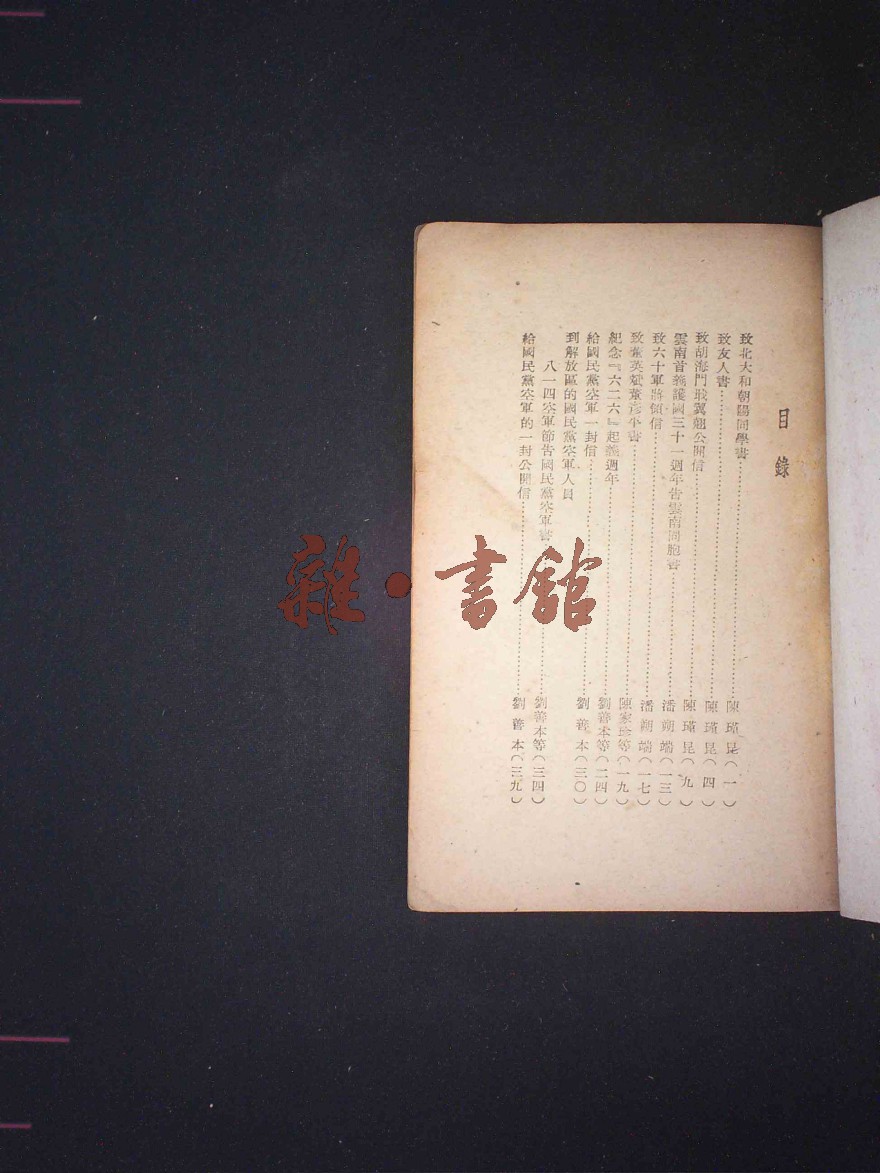 目錄
致北大和朝陽同學書……陳瑾昆(一)
致友人書……陳瑾昆(四)
致胡海門耿翼翹公開信……陳瑾昆(九)
雲南首義護國三十一週年告雲南同胞書……潘朔端(一三)
致六十軍將領信……潘朔端(一七)
致董英斌董彥平書……陳家珍等(一九)
紀念『六二六』起義週年……劉善本等(二四)
給國民黨空軍一封信……劉善本(三〇)
到解放區的國民黨空軍人員
八一四空軍節告國民黨空軍書……劉善本等(三四)
給國民黨空軍的一封公開信……劉善本(三九)
雜·書館